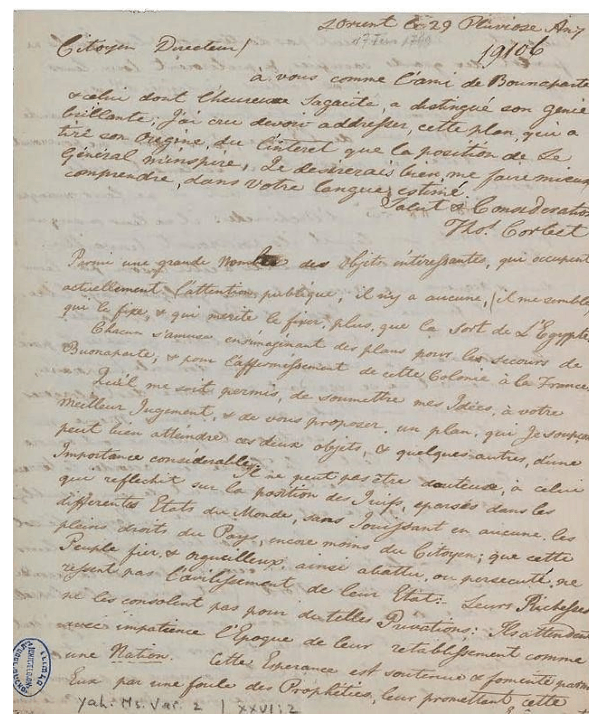 L'Orient le 29 Pluviose An 7
17 Fevr 1799
19106
Citoyen Directeur!
à vous comme l'ami de Bounaparte
& celui dont l'heureuse Sagacité, a distingué son génie
brillante; J'ai cru devoir addresser, cette plan, qui a
tiré son Origine, du l'interet que la position de Le
Général m'inspire. Je desirerais bien, me faire mieux
comprendre, dans votre langue, estimé
Salut & Consideration
Thos. Corbet
Parmi une grande Nombre des Objets intéressantes, qui occupent
actuellement l'attention publique, il n'y a aucune, il me semble
qui le fixe, & qui mérite le fixer, plus, que la Sort de L'Egypte
Chacun s'amuse en imaginant des plans pour les secours de
Buonaparte, & pour l'affermissement de cette Colonie à la France
Qu'il me soit permis, de soumettre mes Idées, à votre
meilleur Jugement, & de vous proposer un plan, qui Je soupçon
peut bien atteindre ces deux objets, & quelques autres, d'une
Importance considerable. Il ne peut pas être douteuse, à celui
que reflechit sur la position des Juifs, eparsés dans les
differentes Etats du Monde, sans Jouissant en aucune les
pleins droits du Pays, encore moins du Citoyen; que cette
Peuple fier, & orgueilleux, ainse abattu, ou persecuté, ne
resent pas l'avilissement de leur Etat: Leurs Richesses
ne les consolent pas pour de telles Privations. Ils attendent
avec impatience l'Epoque de leur retablissement comme
une Nation. Cette Esperance est soutenue & fomenté parmi
Eux par une foule des Prophéties, leur promettant cette
Yah. Ms. Var. 2 / XXVI:2